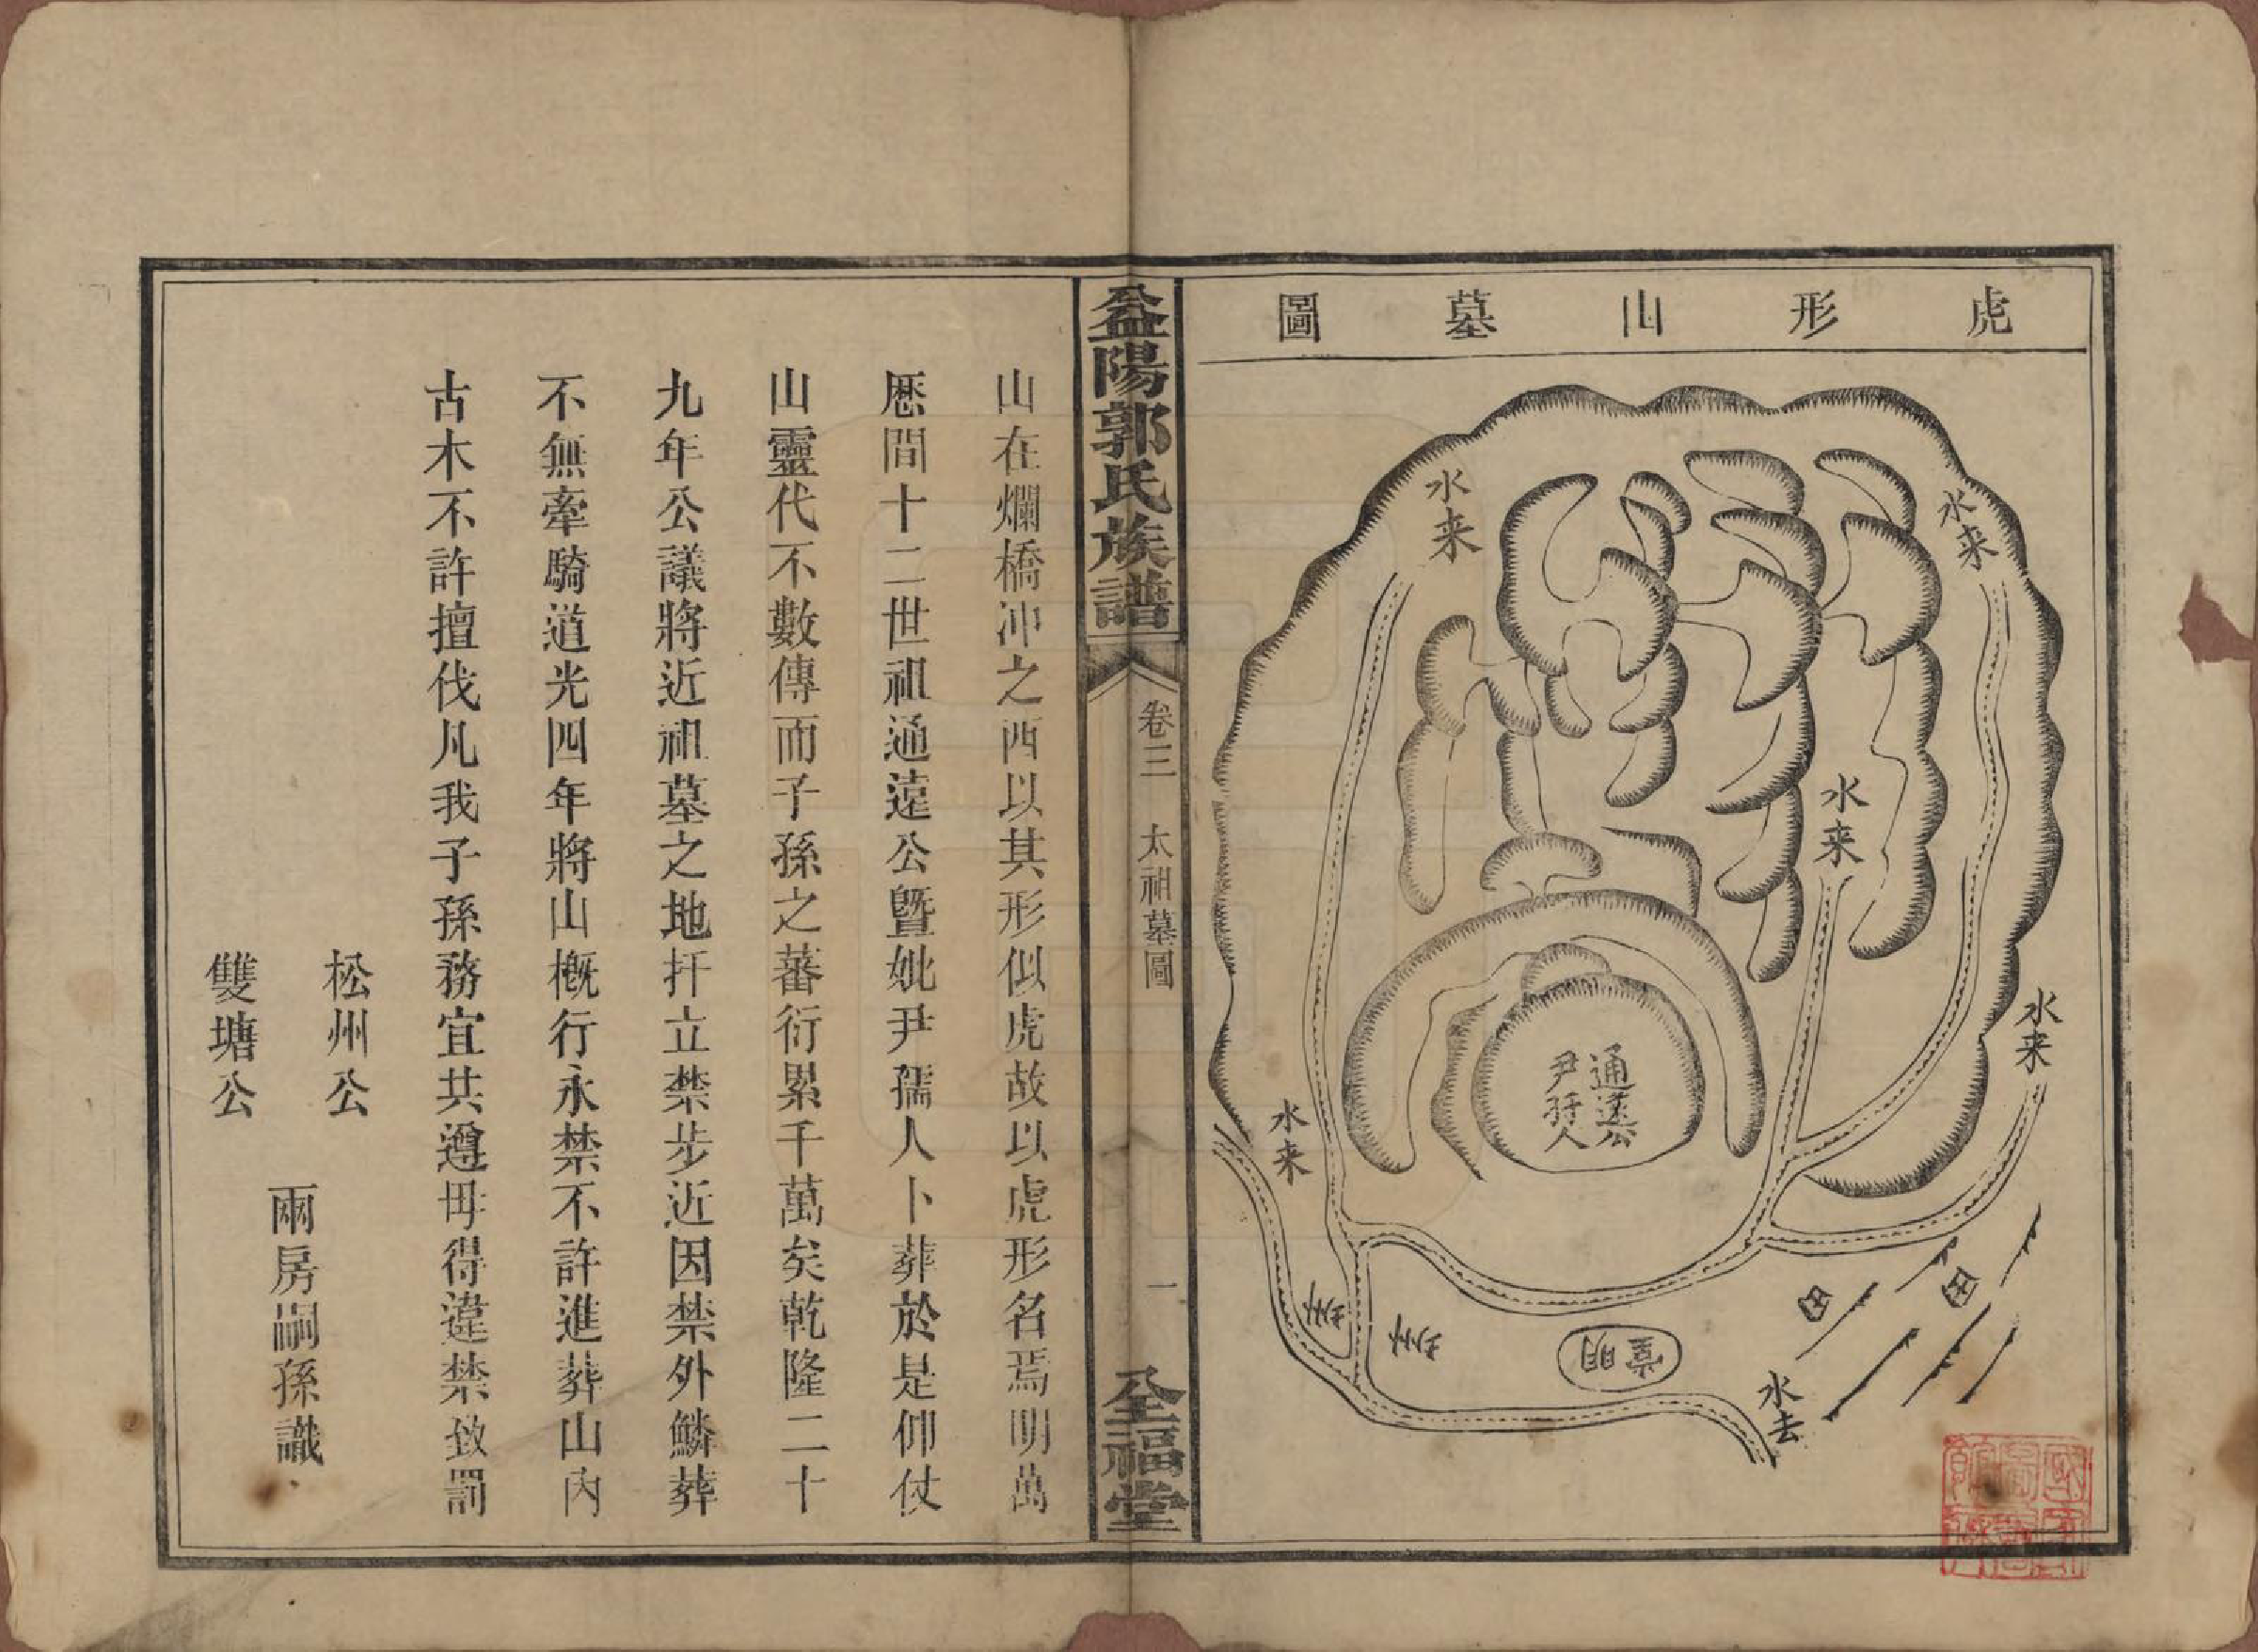 虎形山墓圖
水来
水来
水来
水来
水来
水去
通遠公
尹孺人
明堂
益陽郭氏族譜
卷三 太祖墓圖 一
全福堂
山在爛橋沖之西以其形似虎故以虎形名焉明萬
厯間十二世祖通遠公暨妣尹孺人卜葬於是仰仗
山靈代不數傳而子孫之蕃衍累千萬矣乾隆二十
九年公議將近祖墓之地扦立禁步近因禁外鱗葬
不無牽騎道光四年將山概行永禁不許進葬山內
古木不許擅伐凡我子孫務宜共遵毋得違禁致罰
松州公
兩房嗣孫識
雙塘公